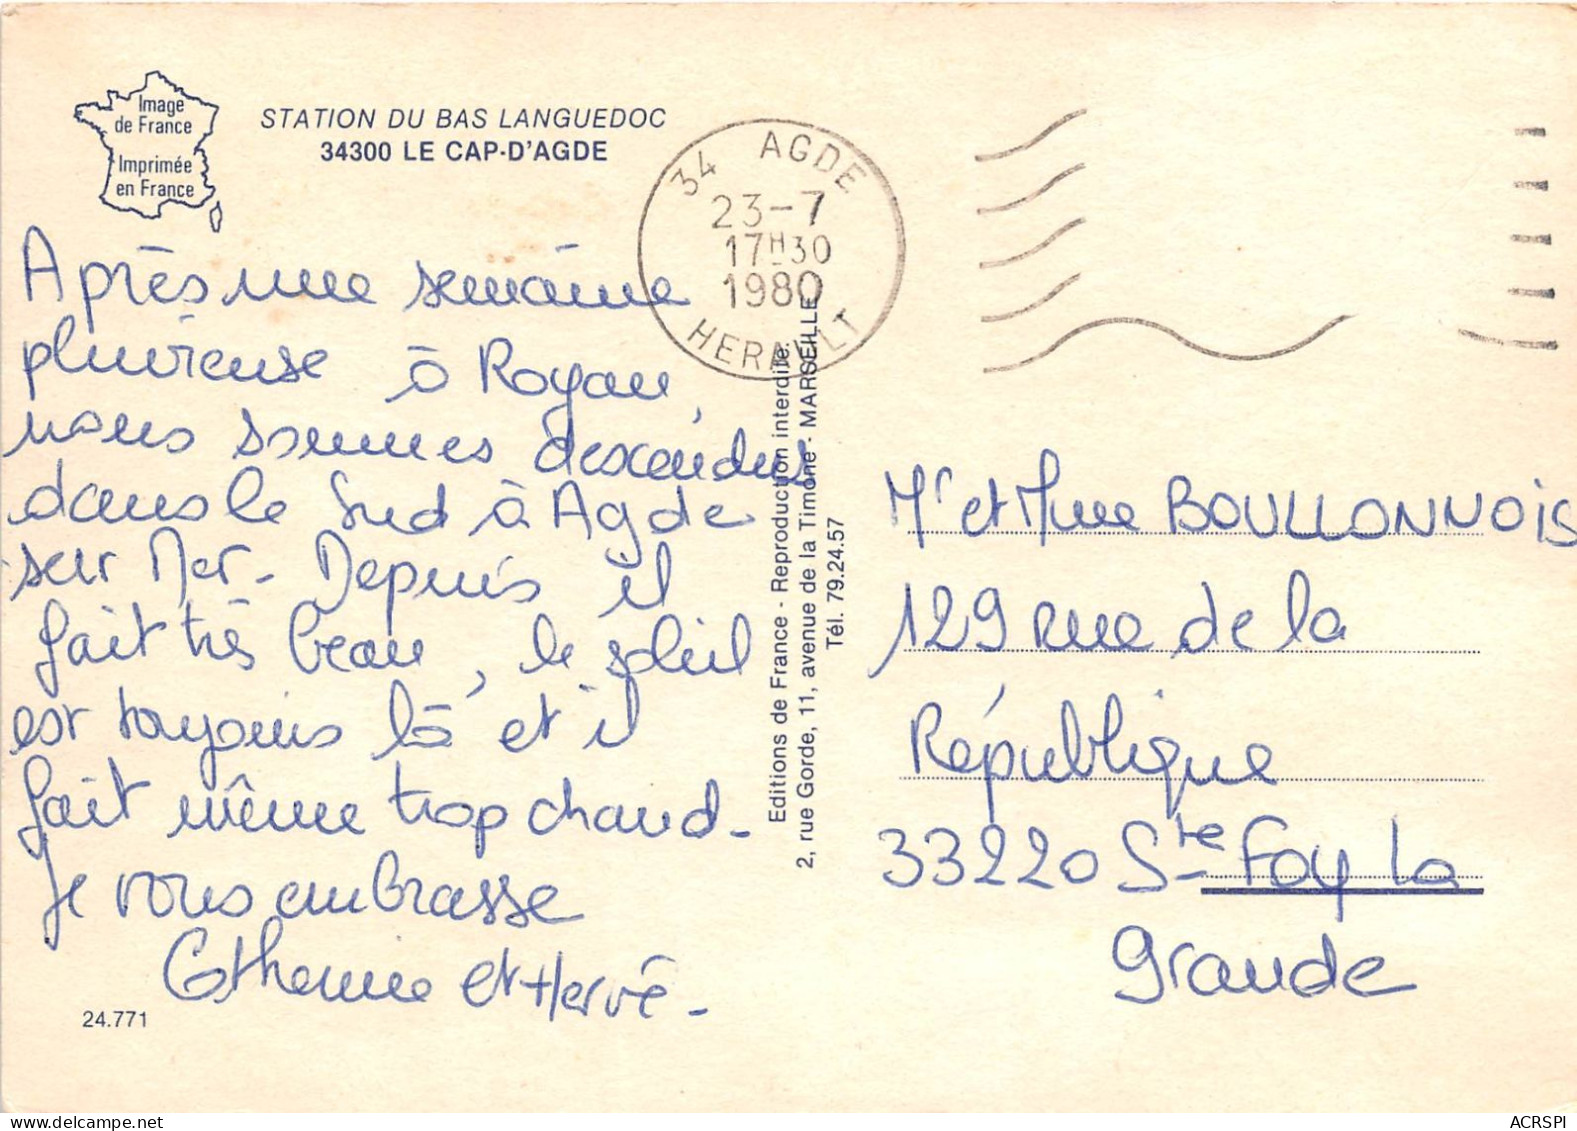 Image
de France
Imprimée
en France
STATION DU BAS LANGUEDOC
34300 LE CAP-D'AGDE
34 AGDE
23-7
17H30
1980
HERAULT
Après une semaine
pluvieuse à Royan,
nous sommes descendus
dans le Sud à Agde
sur Mer. Depuis il
fait très beau, le soleil
est toujours là et il
fait même trop chaud.
Je vous embrasse
Catherine et Hervé.
24.771
Editions de France - Reproduction interdite.
2, rue Gorde, 11, avenue de la Timone - MARSEILLE
Tél. 79.24.57
Mr et Mme BOULLONNOIS
129 rue de la
République
33220 Ste Foy la
grande
delcampe.net
ACRSPI